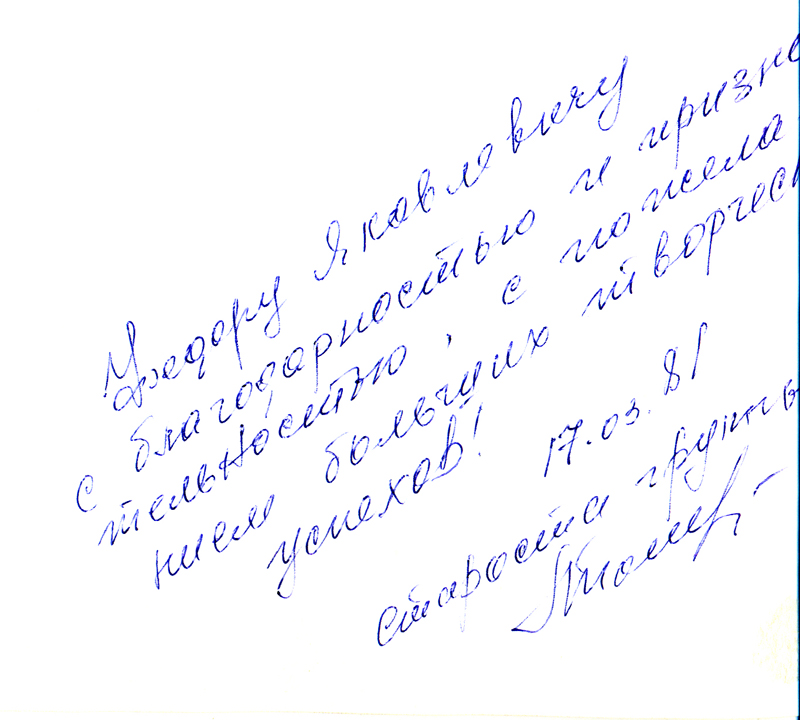 Федору Яковлевичу
с благодарностью и призна
тельностью, с пожела
нием больших творческ
успехов!
17.03.81
староста группы